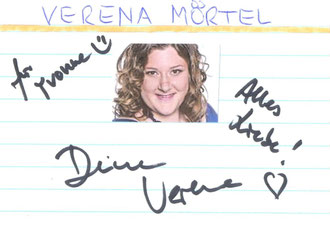 VERENA MÖRTEL
für
Yvonne
Alles
Liebe!
Deine
Verena